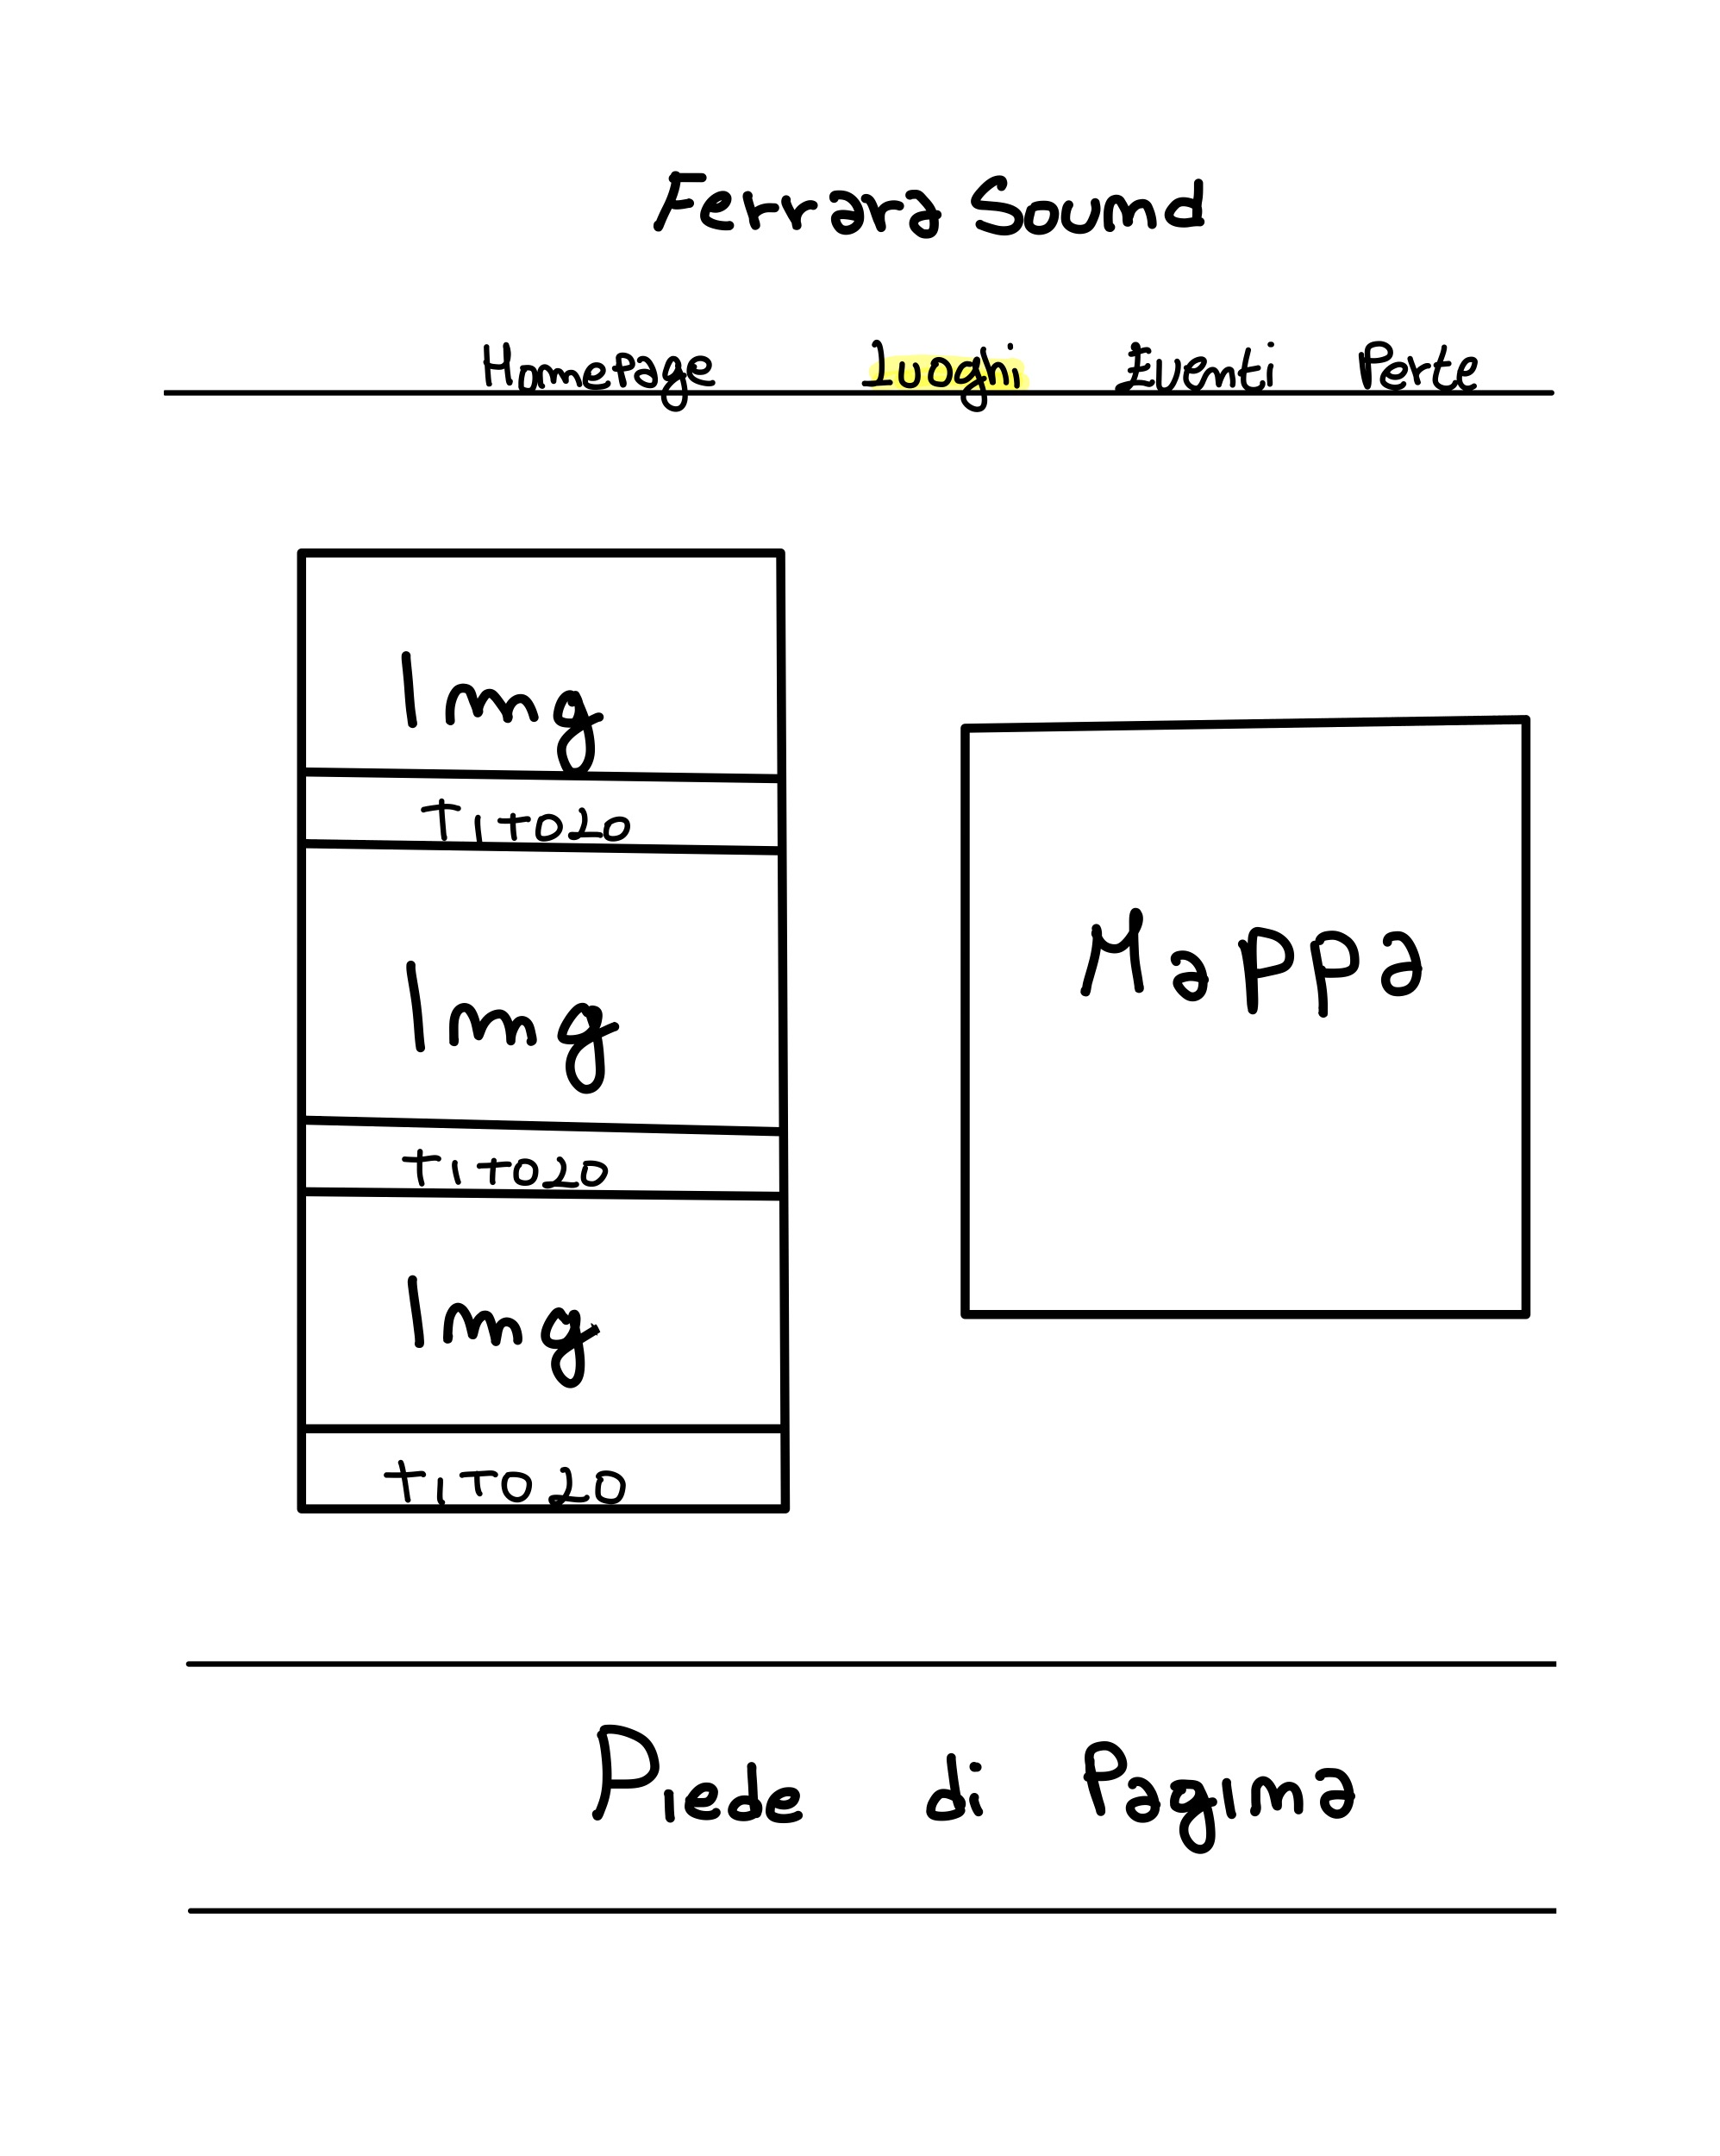 Ferrara Sound
Homepage Luoghi Eventi Rete
Img
Titolo
Img
titolo
Img
titolo
Mappa
Piede di Pagina